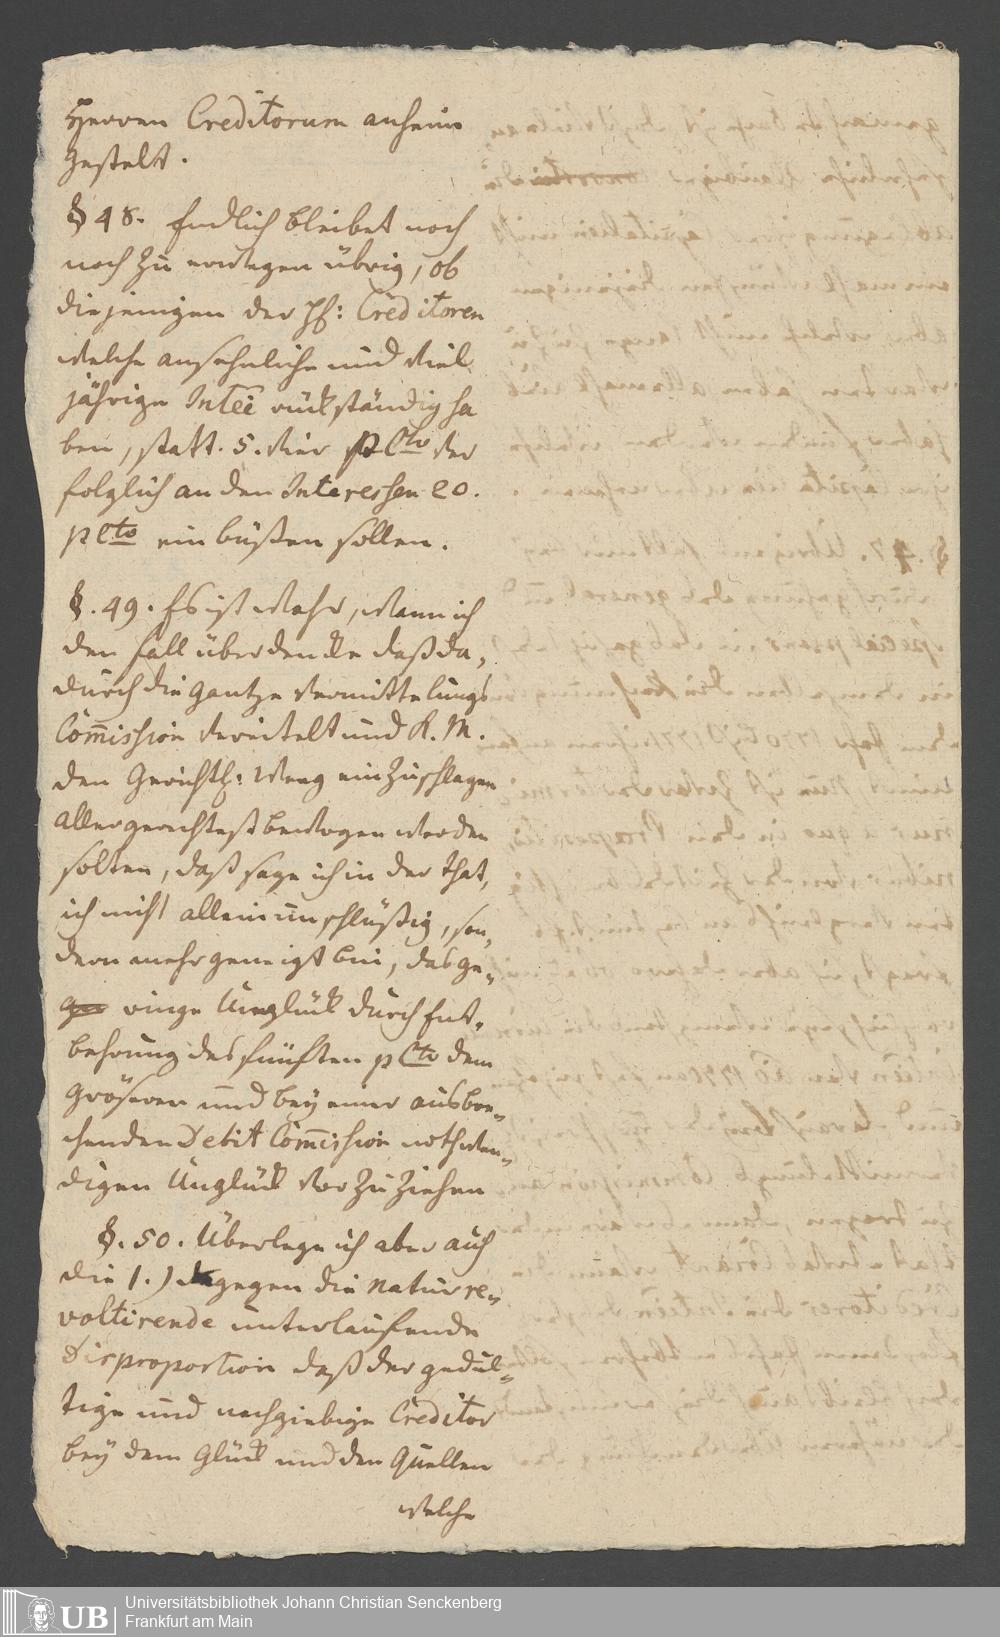 Herren Creditorum anheim
gestelt.
§ 48. Endlich bleibet noch
noch zu erwegen übrig, ob
diejenigen der Hh: Creditoren
welche ansehnliche und viel
jährige Intee rückständig ha
ben, statt. 5. vier pCto der
folglich an den Interessen 20.
pCto einbüßen sollen.
§. 49. Es ist wahr, wann ich
den fall überdencke daß da,
durch die gantze vermittelungs
Com̄ission vereitelt und K. M.
den Gerichtl: Weeg einzuschlagen
allergerechtest bewogen werden
solten, daß sage ich in der that,
ich nicht allein unschlüßig, son,
dern mehr geneigt bin, das ge„
ringe Unglück durch Ent„
behrung des fünften pCto dem
gröseren und bey einer ausbre„
chenden Debit Com̄ission nothwen„
digen Unglück vorzuziehen
§. 50. Überlege ich aber auch
die 1.) gegen die natur re„
voltirende unterlaufende
Disproportion daß der gedul„
tige und nachgiebige Creditor
bey dem Glück und den Quellen
welche
Universitätsbibliothek Johann Christian Senckenberg
UB Frankfurt am Main